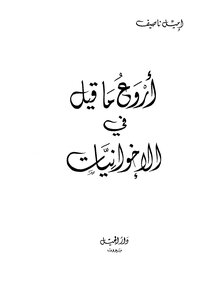 إميل ناصيف
أروع ما قيل
في
الإخوانيّات
دار الجيل
بيروت